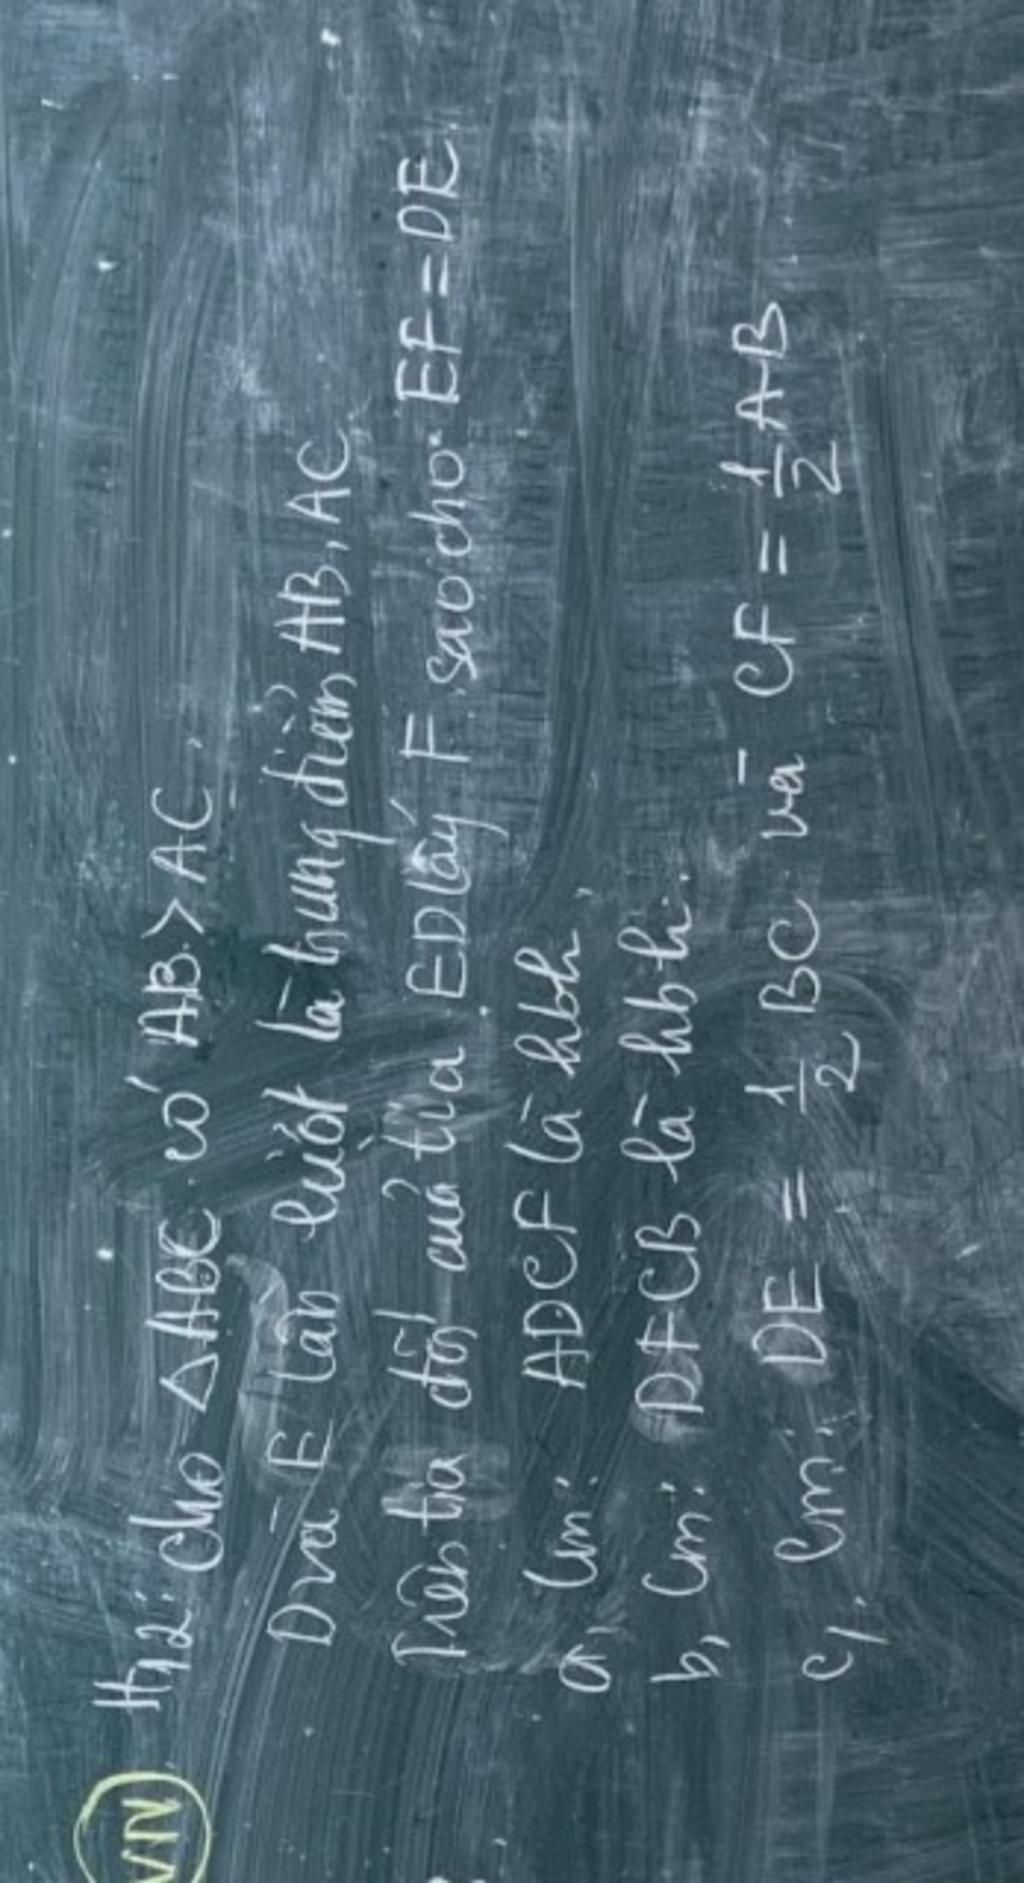 VN
H42: Cho △ABC có AB > AC.
D và E lần lượt là trung điểm AB, AC
Trên tia đối của tia ED lấy F sao cho EF = DE
a, Cm: ADCF là hbh
b, Cm: DFCB là hbh.
c, Cm: DE = 1/2 BC và CF = 1/2 AB